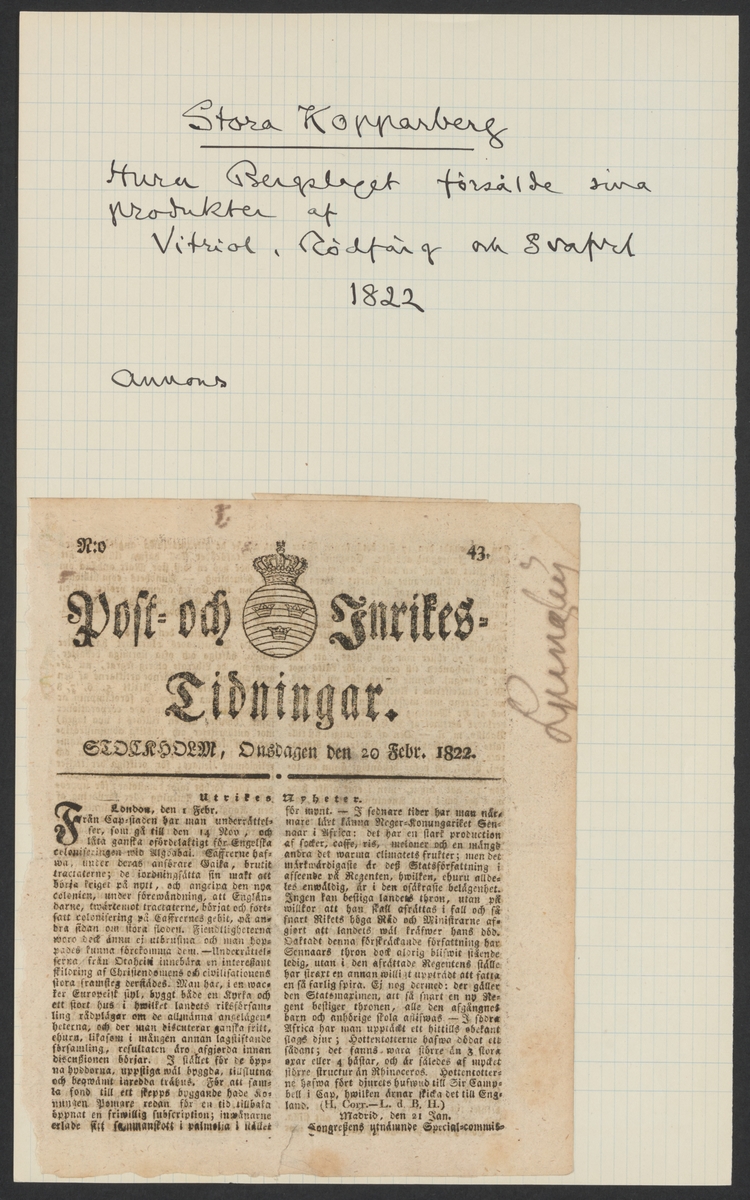 Stora Kopparberg
Huru Bergslaget försålde sina
produkter af
Vitriol, Rödfärg och Svafvel
1822
Annons
N:o 43.
Post- och Inrikes-
Tidningar.
STOCKHOLM, Onsdagen den 20 Febr. 1822.
Utrikes Nyheter.
London, den 1 Febr.
Från Cap-staden har man underrättel-
ser, som gå till den 14 Nov, och
låta ganska ofördelaktigt för Engelska
coloniseringen wid Algoabai. Cafferne haf-
wa, under deras anförare Gaika, brutit
tractaterne; de iordningsätta sin makt att
börja kriget på nytt, och angripa den nya
colonien, under förewändning, att Englän-
darne, twärtemot tractaterne, börjat och fort-
satt colonisering på Caffrernes gebit, på an-
dra sidan om stora floden. Fiendtligheterna
woro dock ännu ej utbrustna och man hop-
pades kunna förekomma dem. —Underrättel-
serna från Otaheiti innebära en interessant
skildring af Christendomens och civilisationens
stora framsteg derstädes. Man har, i en wac-
ker Europeisk styl, byggt både en Kyrka och
ett stort hus i hwilket landets riksförsam-
ling rådplägar om de allmänna angelägen-
heterna, och der man discuterar ganska fritt,
ehuru, likasom i mången annan lagstiftande
församling, resultaten äro afgjorda innan
discussionen börjar. I stället för de öpp-
na hyddorna, uppstiga wäl byggda, tillslutna
och beqwämt inredda trähus. För att sam-
la fond till ett skepps byggande hade Ko-
nungen Pomare redan för en tid tillbaka
öppnat en friwillig subscription; inwånarne
erlade sitt sammanskott i palmolja i stället
för mynt. — I sednare tider har man när-
mare lärt känna Neger-Konungariket Sen-
naar i Africa: det har en stark production
af socker, caffe, ris, meloner och en mängd
andra det warma climatets frukter; men det
märkwärdigaste är deß Statsförfattning i
afseende på Regenten, hwilken, ehuru allde-
les enwäldig, är i den osäkraste belägenhet.
Ingen kan bestiga landets thron, utan på
willkor att han skall afrättas i fall och så
snart Rikets höga Råd och Ministrarne af-
gjort att landets wäl kräfwer hans död.
Oaktadt denna förskräckande författning har
Sennaars thron dock aldrig blifwit stående
ledig, utan i den afrättade Regentens ställe
har strart en annan willigt uppträdt att fatta
en så farlig spira. Ej nog dermed: der gäller
den Statsmaximen, att så snart en ny Re-
gent bestiger thronen, alle den afgångnes
barn och anhörige skola aflifwas — I södra
Africa har man upptäckt ett hittills obekant
slags djur; Hottentotterne hafwa dödat ett
sådant; det fanns wara större än 3 stora
oxar eller 4 hästar, och är således af mycket
större structur än Rhinoceros. Hottentotter-
ne hafwa fört djurets hufwud till Sir Camp-
bell i Cap, hwilken ärnar skicka det till Eng-
land. (H. Corr.—L. d. B. H.)
Madrid, den 21 Jan.
Congreßens utnämnde Special-commis-